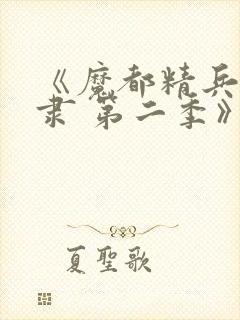 《魔都精兵
隶 第二季》
夏聖歌